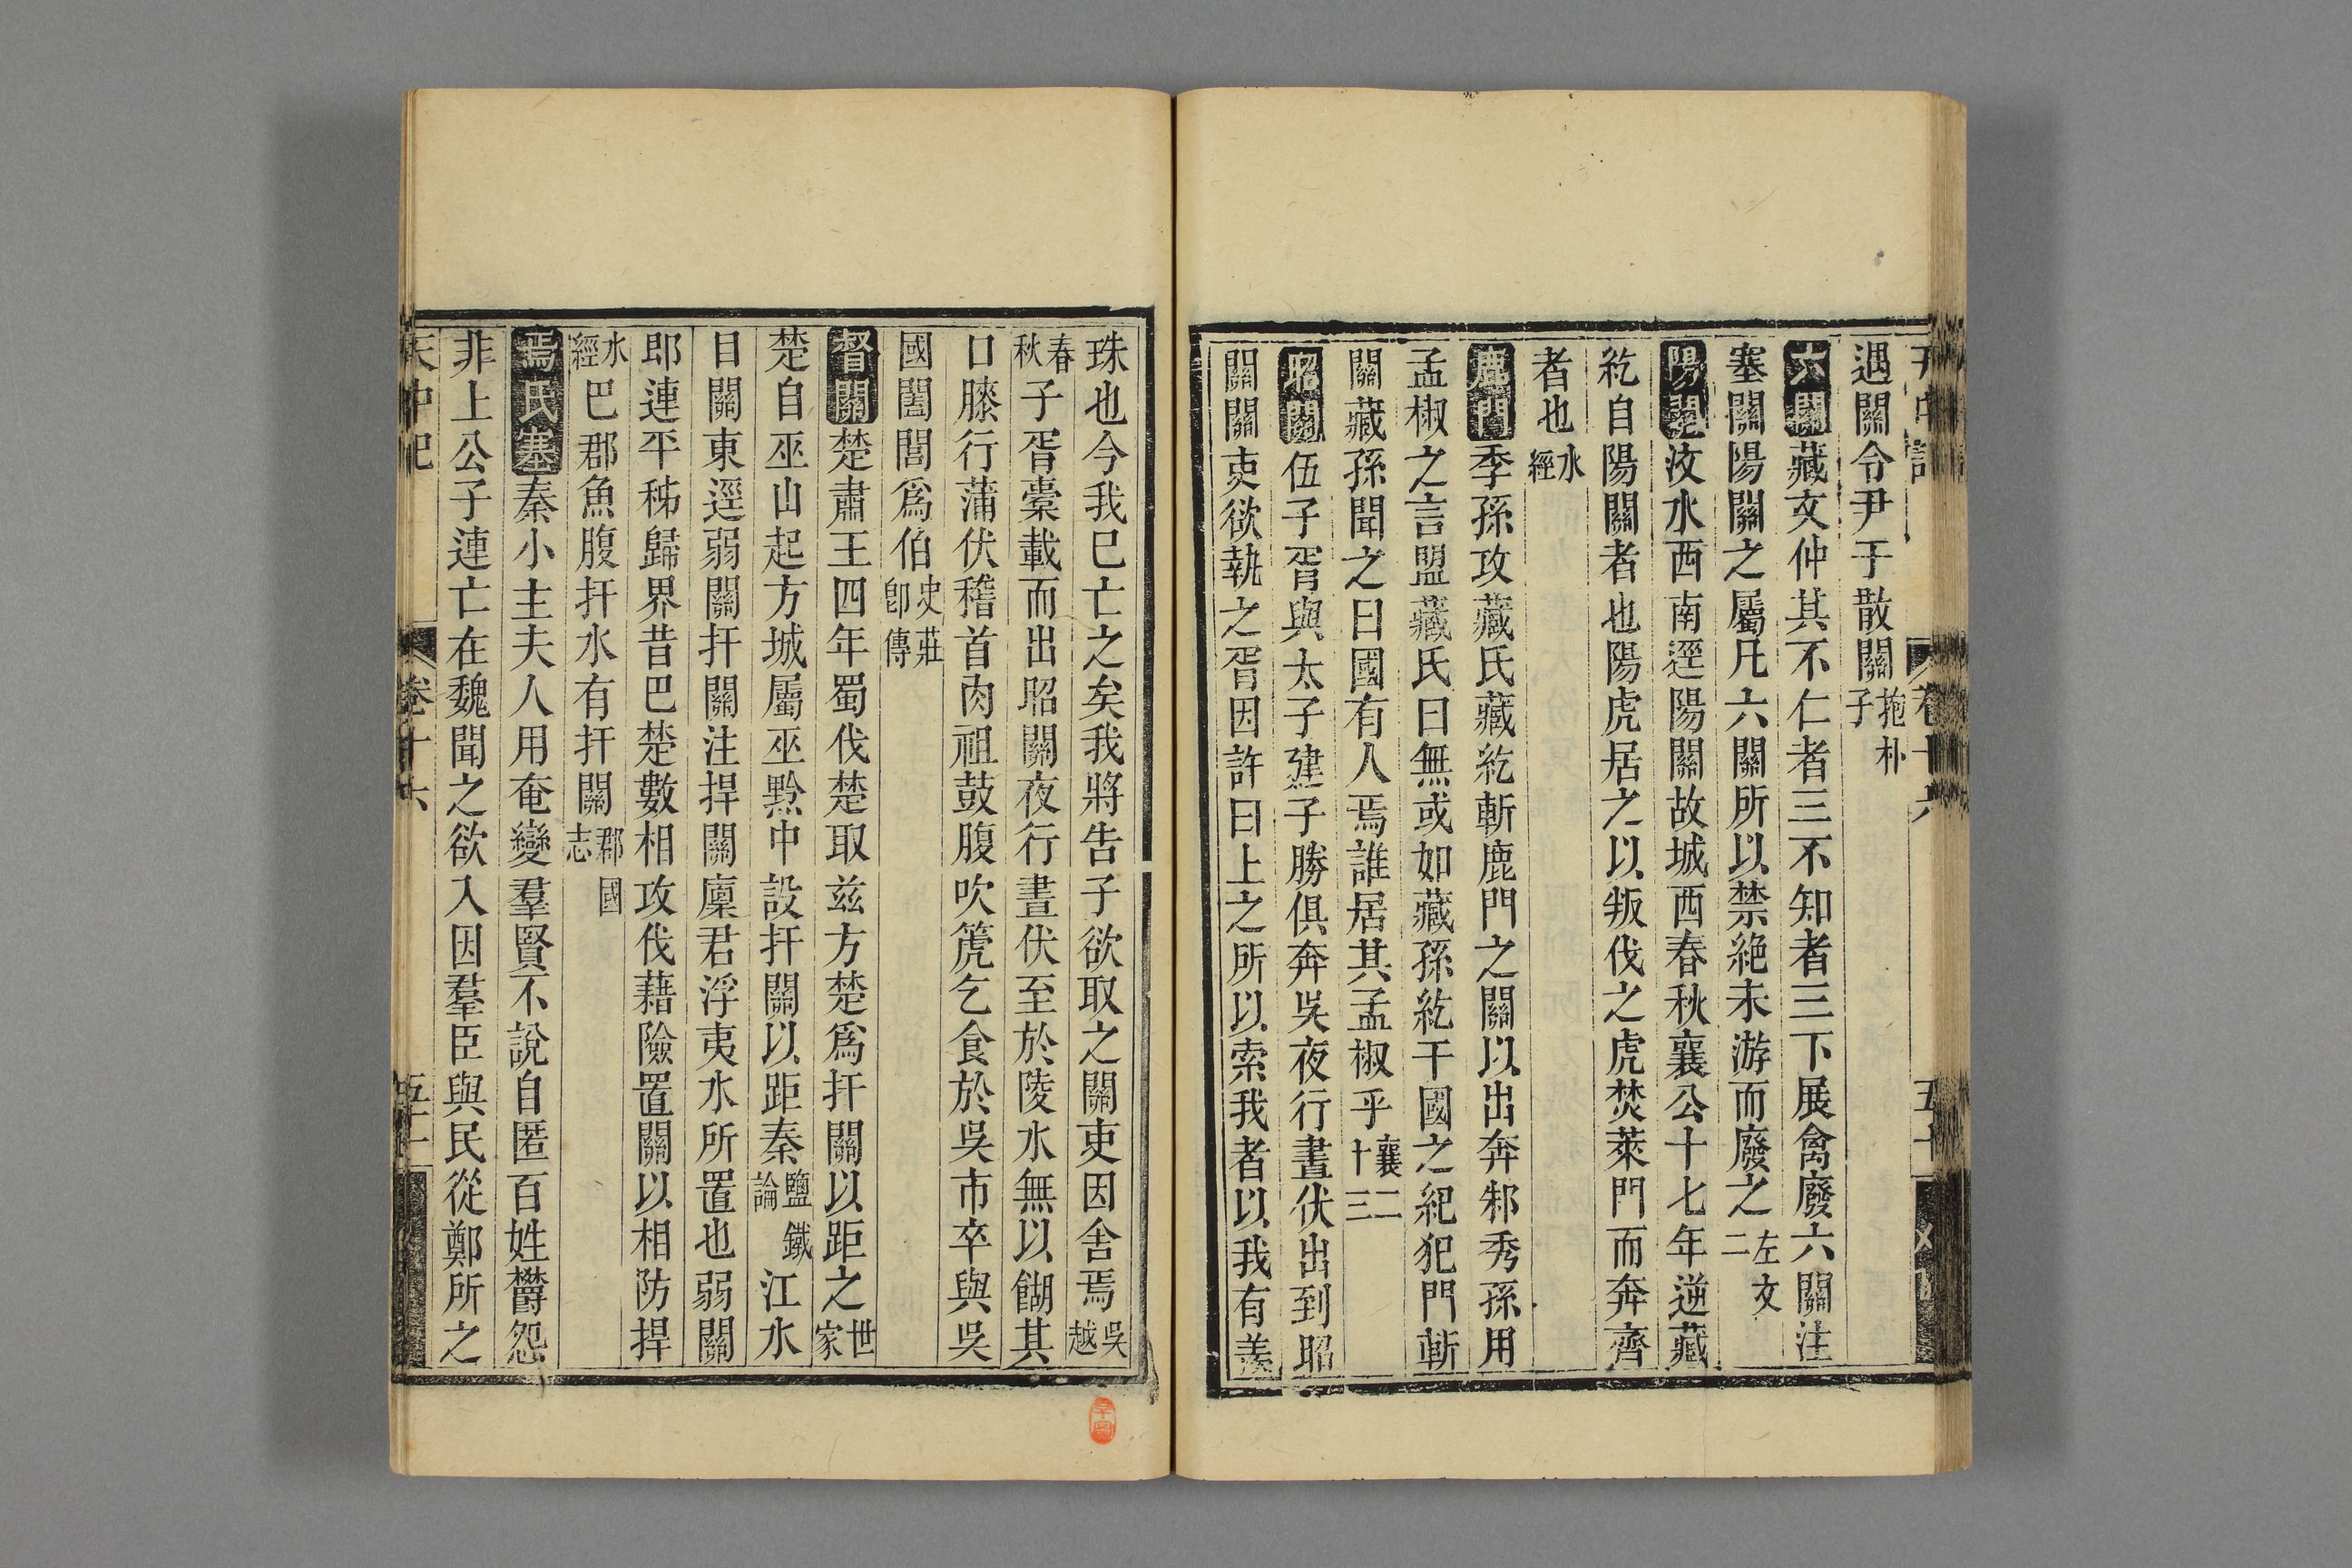 遇關令尹于散關抱朴子
六關藏文仲其不仁者三不知者三下展禽廢六關注
塞關陽關之屬凡六關所以禁絶末游而廢之左文二
陽關汶水西南逕陽關故城西春秋襄公十七年逆藏
紇自陽關者也陽虎居之以叛伐之虎焚萊門而奔齊
者也水經
鹿門季孫攻藏氏藏紇斬鹿門之關以出奔邾秀孫用
孟椒之言盟藏氏曰無或如藏孫紇干國之紀犯門斬
關藏孫聞之曰國有人焉誰居其孟椒乎襄二十三
昭關伍子胥與太子建子勝俱奔吳夜行晝伏出到昭
關關吏欲執之胥因許曰上之所以索我者以我有美
珠也今我已亡之矣我將告子欲取之關吏因舍焉吳越
春秋子胥橐載而出昭關夜行晝伏至於陵水無以餬其
口膝行蒲伏稽首肉祖鼓腹吹篪乞食於吳市卒與吳
國闔閭爲伯史莊卽傳
督關楚肅王四年蜀伐楚取兹方楚爲扞關以距之世家
楚自巫山起方城屬巫黔中設扞關以距秦鹽鐵論江水
目關東逕弱關扞關注捍關廩君浮夷水所置也弱關
郎連平秭歸界昔巴楚數相攻伐藉險置關以相防捍
水經巴郡魚腹扞水有扞關郡國志
焉氏塞秦小主夫人用奄變羣賢不說自匿百姓欝怨
非上公子連亡在魏聞之欲入因羣臣與民從鄭所之
天中記
卷十六
五十一